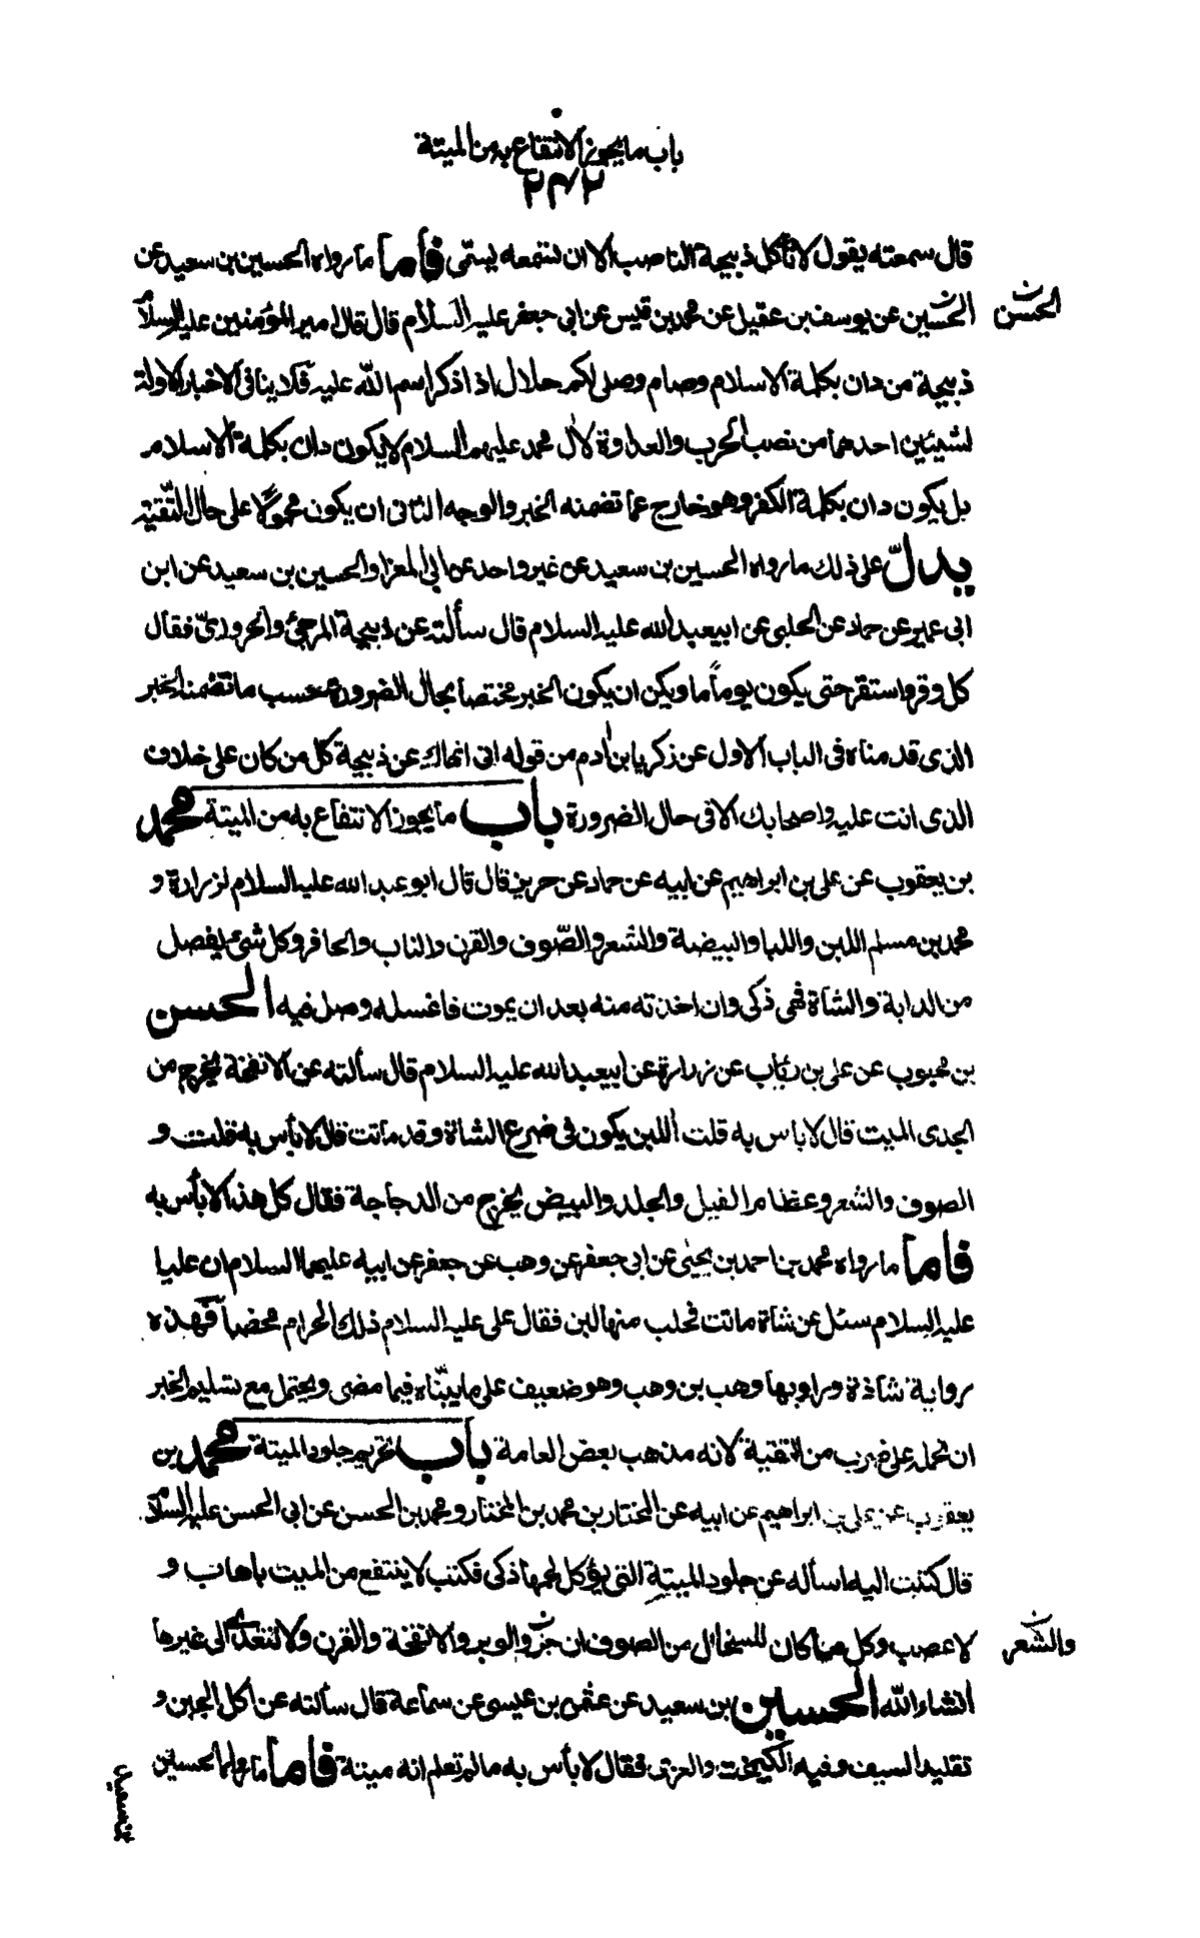 باب ما يجوز الانتفاع به من الميتة
٢٤٢
قال سمعته يقول لا تأكل ذبيحة الناصب الا ان تسمعه يسمّى فأما ما رواه الحسين بن سعيد عن
الحسين عن يوسف بن عقيل عن محمد بن قيس عن ابى جعفر عليه السلام قال قال امير المؤمنين عليه السلام
الحسن ن
ذبيحة من دان بكلمة الاسلام وصام وصلى لكم حلال اذا ذكر اسم الله عليه فلا ينافى الاخبار الاولة
لشيئين احدهما من نصب الحرب والعداوة لآل محمد عليهم السلام لا يكون دان بكلمة الاسلام
بل يكون دان بكلمة الكفر وهو خارج عما تضمنه الخبر والوجه الثانى ان يكون محمولا على حال التقية
يدلّ على ذلك ما رواه الحسين بن سعيد عن غير واحد عن ابى المعزا والحسين بن سعيد عن ابن
ابى عمير عن حماد عن الحلبى عن ابيعبد الله عليه السلام قال سألته عن ذبيحة المرجئ والحرورىّ فقال
كل وقر واستقر حتى يكون يوما ما ويكن ان يكون الخبر مختصا بحال الضرورة حسب ما تضمنه الخبر
الذى قدمناه فى الباب الاول عن زكريا بن ادم من قوله انى انهاك عن ذبيحة كل من كان على خلاف
الذى انت عليه واصحابك الا فى حال الضرورة باب ما يجوز الانتفاع به من الميتة محمد
بن يعقوب عن على بن ابراهيم عن ابيه عن حماد عن حريز قال قال ابو عبد الله عليه السلام لزرارة و
محمد بن مسلم اللبن واللبا والبيضة والشعر والصّوف والقرن والناب والحافر وكل شئ يفصل
من الدابة والشاة فهى ذكى وان اخذته منه بعد ان يموت فاغسله وصل فيه الحسن
بن محبوب عن على بن رئاب عن زرارة عن ابيعبد الله عليه السلام قال سألته عن الانفخة يخرج من
الجدى الميت قال لا باس به قلت اللبن يكون فى ضرع الشاة وقد ماتت قال لا بأس به قلت و
الصوف والشعر وعظام الفيل والجلد والبيض يخرج من الدجاجة فقال كل هذا لا بأس به
فأما ما رواه محمد بن احمد بن يحيى عن ابى جعفر عن وهب عن جعفر عن ابيه عليهما السلام ان عليا
عليه السلام سئل عن شاة ماتت فحلب منها لبن فقال على عليه السلام ذلك الحرام محضا فهذه
رواية شاذة وراويها وهب بن وهب وهو ضعيف على ما بيّناه فيما مضى ويحتمل مع تسليم الخبر
ان تحمله على ضرب من التقية لانه مذهب بعض العامة باب تحريم جلود الميتة محمد بن
يعقوب عن على بن ابراهيم عن ابيه عن المختار بن محمد بن المختار ومحمد بن الحسن عن ابى الحسن عليه السلام
قال كتبت اليه اسأله عن جلود الميتة التى يؤكل لحمها ذكى فكتب لا ينتفع من الميت باهاب و
لا عصب وكل ما كان للسخال من الصوف ان جزّ والوبر والانفخة والقرن ولا تتعدى الى غيرها
والشعر ن
انشاء الله الحسين بن سعيد عن عثمن بن عيسى عن سماعة قال سألته عن اكل الجبن و
تقليد السيف وفيه الكيمخت والغرى فقال لا بأس به ما لم تعلم انه ميتة فأما ما رواه الحسين
بن سعيد